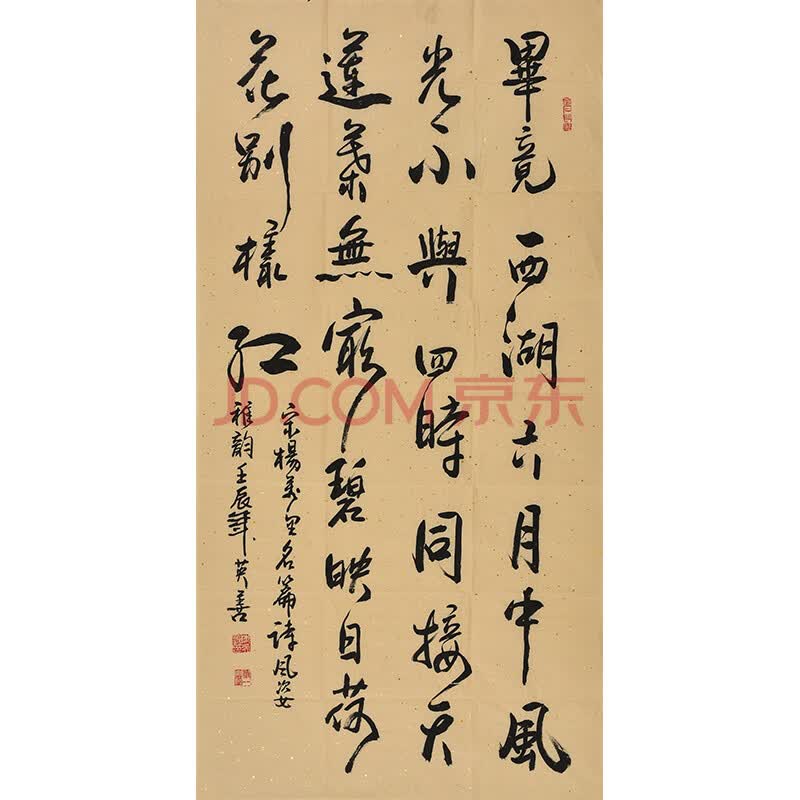 畢竟西湖六月中風
光不與四時同接天
蓮葉無窮碧映日荷
花別樣紅
宋楊萬里名篇詩風姿
雅韻壬辰年英善
JD.COM 京东